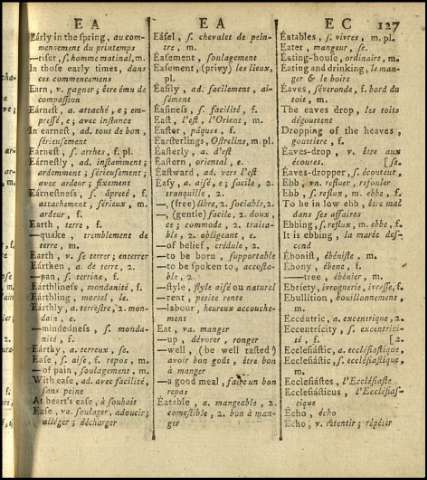 EA
EA
EC
127
Early in the spring, au com-
mencement du printems
—riser, s. homme matinal, m.
In those early times, dans
ces commencemens
Earn, v. gagner; être ému de
compassion
Earnest, a. attaché, e; em-
pressé, e; avec instance
In earnest, ad. tous de bon,
sérieusement
Earnest, s. arrhes, f. pl.
Earnestly, ad. instamment;
ardemment; sérieusement;
avec ardeur; fixement
Earnestness, s. âpreté, f.
attachement, sérieux, m.
ardeur, f.
Earth, terre, f.
—quake, tremblement de
terre, m.
Earth, v. se terrer; enterrer
Eárthen, a. de terre, 2.
—pan, s. terrine, f.
Eárthliness, mondanité, f.
Eárthling, mortel, le.
Eárthly, a. terrestre, 2. mon-
dain, e.
—mindedness, s. monda-
nité, f.
Eárthy, a. terreux, se.
Ease, s. aise, f. repos, m.
—of pain, soulagement, m.
With ease, ad. avec facilité,
sans peine
At heart's ease, à souhait
Ease, va. soulager, adoucir;
alléger; décharger
Eásel, s. chevalet de pein-
tre, m.
Easement, soulagement
Easement, (privy) les lieux,
pl.
Easily, ad. facilement, ai-
sément
Easiness, s. facilité, f.
East, l'est, l'Orient, m.
Easter, pâques, f.
Easterlings, Ostrelins, m. pl.
Easterly, a. l'est
Eastern, oriental, e.
Eastward, ad. vers l'est
Easy, a. aisé, e; facile, 2.
tranquille, 2.
—, (free) libre, 2. sociable, 2.
—, (gentle) facile, 2. doux,
ce; commode, 2. traita-
ble, 2. obligeant, e.
—of belief, crédule, 2.
—to be born, supportable
—to be spoken to, accesta-
ble, 2.
—style, style aisé ou naturel
—rent, petite rente
—labour, heureux accouche-
ment
Eat, va. manger
—up, dévorer, ronger
—well, (be well tasted)
avoir bon goût, être bon
à manger
—a good meal, faire un bon
repas
Eatable, a. mangeable, 2.
comestible, 2. bon à man-
ger
Eatables, s. vivres, m. pl.
Eater, mangeur, se.
Eating-house, ordinaire, m.
Eating and drinking, le man-
ger & le boire
Eaves, séveronde, f. bord du
toit, m.
The eaves drop, les toits
dégouttent
Dropping of the heaves,
gouttiere, f.
Eaves-drop, v. être aux
écoutes. [se.
Eaves-dropper, s. écouteur,
Ebb, vn. refluer, refouler
Ebb, s. reflux, m. ebbe, f.
To be in low ebb, être mal
dans ses affaires
Ebbing, s. reflux, m. ebbe, f.
It is ebbing, la marée des-
cend
Ebonist, ébéniste, m.
Ebony, ébene, f.
—tree, ébénier, m.
Ebriety, ivrognerie, ivresse, f.
Ebullition, bouillonnement,
m.
Eccéntric, a. excentrique, 2.
Eccentricity, s. excentrici-
té, f. [2.
Ecclesiástic, a. ecclésiastique,
Ecclesiástic, s. ecclésiastique,
m.
Ecclesiástes, l'Ecclésiaste
Ecclesiásticus, l'Ecclésias-
tique
Echo, écho
Echo, v. retentir; répéter